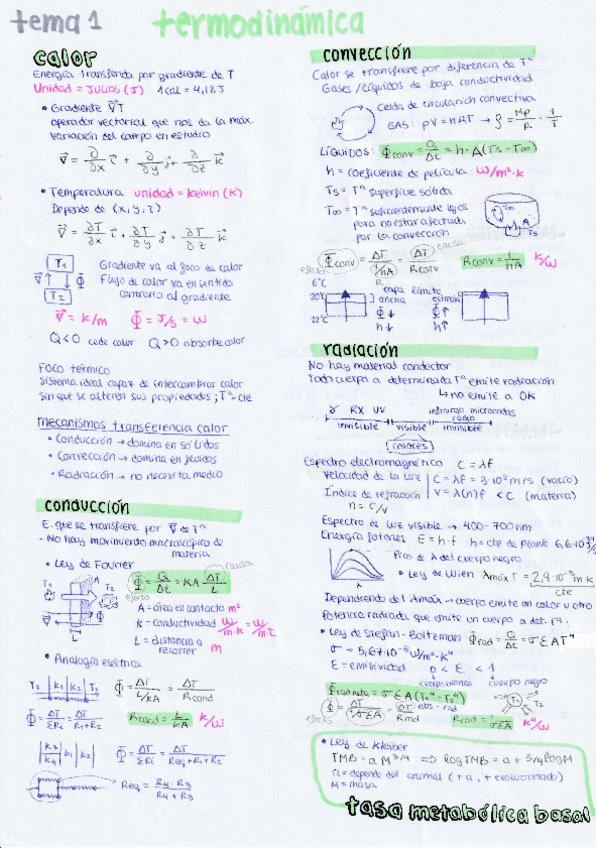 tema 1 termodinámica
calor
Energía transferida por gradiente de T
Unidad = JULIOS (J) 1cal = 4,18J
• Gradiente ∇T
operador vectorial que nos da la máx.
variación del campo en estudio
∇ = ∂/∂x i + ∂/∂y j + ∂/∂z k
• Temperatura unidad = kelvin (K)
Depende de (x, y, z)
∇ = ∂T/∂x i + ∂T/∂y j + ∂T/∂z k
T1
T2
∇
Φ
Gradiente va al foco de calor
Flujo de calor va en sentido
contrario al gradiente
∇ = K/m Φ = J/s = W
Q<0 cede calor Q>0 absorbe calor
FOCO térmico
Sistema ideal capaz de intercambiar calor
sin que se alteren sus propiedades; Tª cte
mecanismos transferencia calor
• Conducción → domina en sólidos
• Convección → domina en fluidos
• Radiación → no necesita medio
conducción
E. que se transfiere por ∇ de Tª
- No hay movimiento macroscópico de
materia
• Ley de Fourier
Φ = Q/Δt = KA ΔT/L
causa
efecto
T1 T2
A = área en contacto m²
K = conductividad W/m·K
L = distancia a
recorrer m
• Analogía eléctrica
T1 | K1 | K2 | T2
Φ = ΔT/(L/KA) = ΔT/Rcond
Φ = ΔT/ΣRi = ΔT/(R1+R2)
Rcond = L/KA K/W
K3 K4 K1 K2
Φ = ΔT/ΣRi = ΔT/(Req+R1+R2)
Req = R4·R3/(R4+R3)
convección
Calor se transfiere por diferencia de Tª
Gases/Líquidos de baja conductividad
Celda de circulación convectiva
GAS: pV = nRT → ρ = Mp/R · 1/T
LÍQUIDOS: Φconv = Q/Δt = h·A(Ts - T∞)
h = coeficiente de película W/m²·K
Ts = Tª superficie sólida
T∞ = Tª suficientemente lejos
para no estar afectada
por la convección
T∞ A Ts
Φconv = ΔT/(1/hA) = ΔT/Rconv
causa
efecto
Rconv = 1/hA K/W
6ºC
20ºC
22ºC
capa límite
ancha estrecha
Φ↓ Φ↑
h↓ h↑
radiación
No hay material conductor
Todo cuerpo a determinada Tª emite radiación
↳ no emite a 0K
γ RX UV infrarrojo microondas
radio
invisible visible invisible
colores
Espectro electromagnético c = λf
Velocidad de la luz c = λf = 3·10⁸ m/s (vacío)
Índice de refracción v = λ(n)f < c (materia)
n = c/v
Espectro de luz visible → 400-700nm
Energía fotones E = h·f h = cte de Plank 6,6·10⁻³⁴ J/s
Pico de λ del cuerpo negro
• Ley de Wien λmáx T = 2,9·10⁻³ m·K
cte
Dependiendo del λmáx → cuerpo emite un color u otro
Potencia radiada que emite un cuerpo a det. Tª:
• Ley de Stefan-Boltzman Φrad = Q/Δt = σεAT⁴
σ = 5,67·10⁻⁸ W/m²·K⁴
ε = emisividad 0 < ε < 1
cuerpo blanco cuerpo negro
Φrad neta = σεA(Te⁴ - Ts⁴)
abs - rad
Rrad = 1/σεA K⁴/W
efecto
• Ley de Kleiber
TMB = a M^3/4 ⇒ log TMB = a + 3/4 log M
a = depende del animal (+a, + evolucionado)
M = masa
tasa metabólica basal